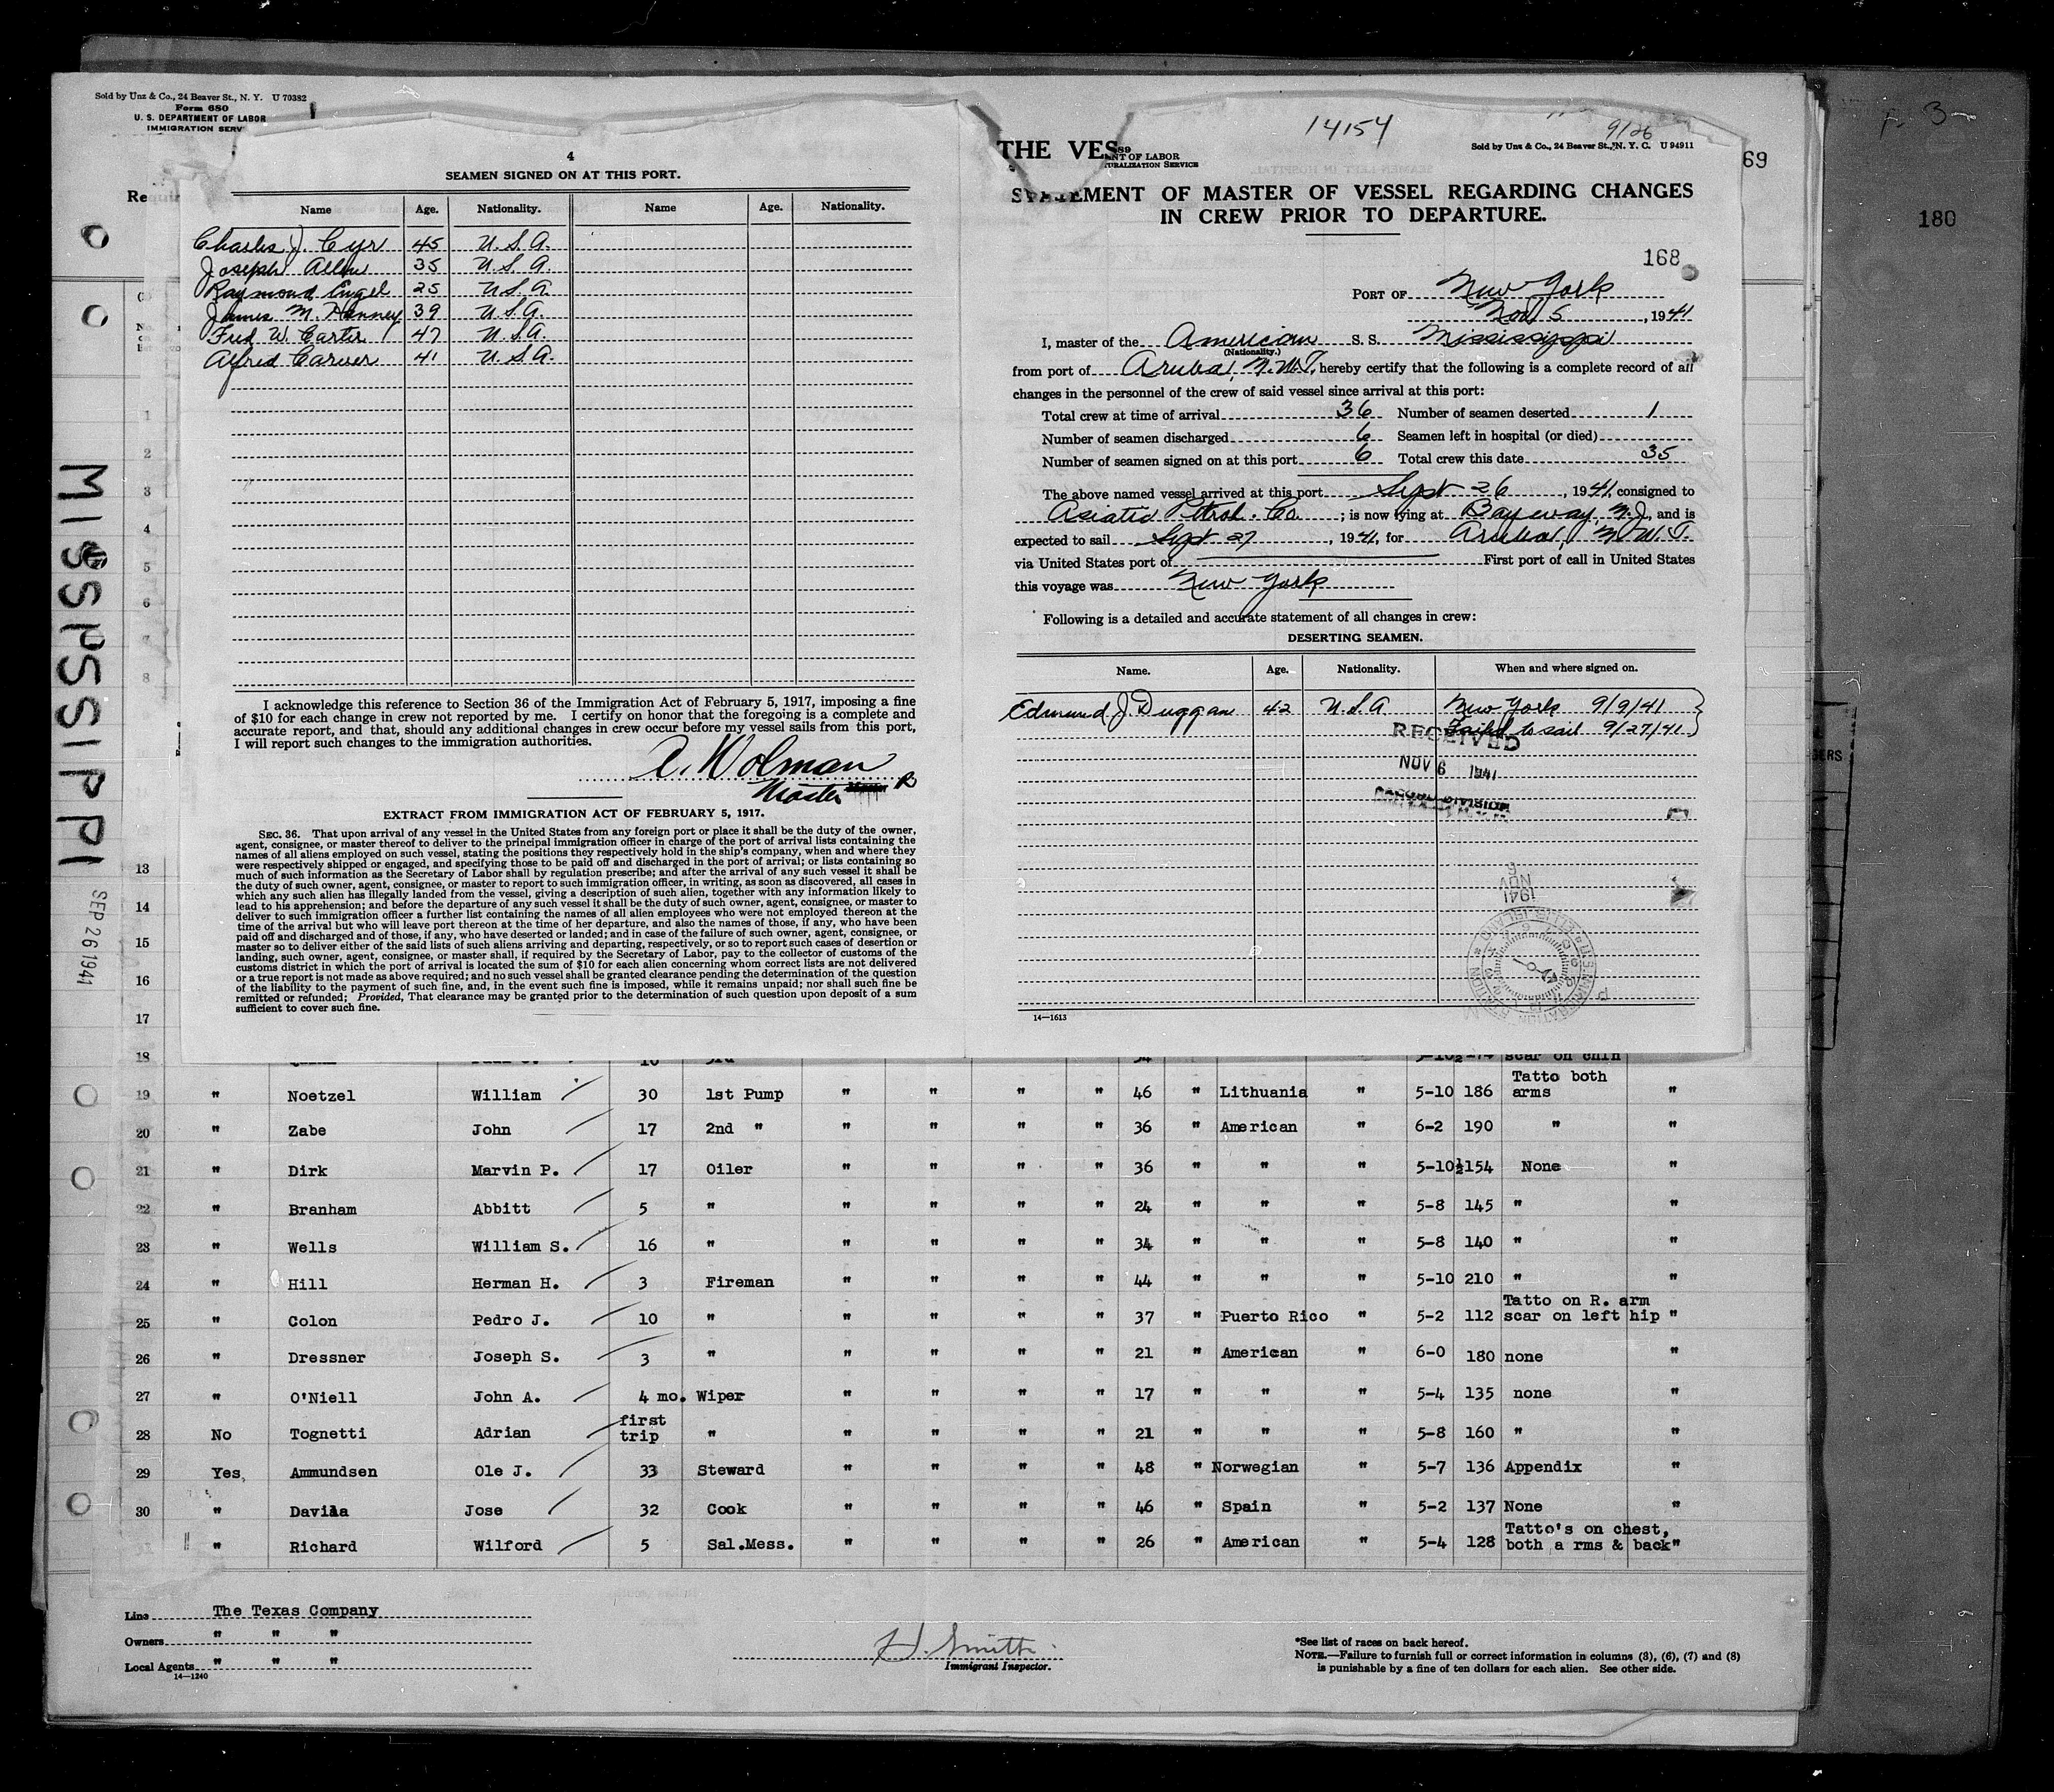 Sold by Unz & Co., 24 Beaver St., N. Y. U 70382
Form 680
U. S. DEPARTMENT OF LABOR
IMMIGRATION SERV
Re
MISSISSIPPI
SEP 26 1941
4
SEAMEN SIGNED ON AT THIS PORT.
Name Age. Nationality. Name Age. Nationality.
Charles J. Cyr 45 U.S.A.
Joseph Allen 35 U.S.A.
Raymond Engel 25 U.S.A.
James M. Hanney 39 U.S.A.
Fred W. Carter 47 U.S.A.
Alfred Carver 41 U.S.A.
I acknowledge this reference to Section 36 of the Immigration Act of February 5, 1917, imposing a fine
of $10 for each change in crew not reported by me. I certify on honor that the foregoing is a complete and
accurate report, and that, should any additional changes in crew occur before my vessel sails from this port,
I will report such changes to the immigration authorities.
A. Wolman
Master
EXTRACT FROM IMMIGRATION ACT OF FEBRUARY 5, 1917.
SEC. 36. That upon arrival of any vessel in the United States from any foreign port or place it shall be the duty of the owner,
agent, consignee, or master thereof to deliver to the principal immigration officer in charge of the port of arrival lists containing the
names of all aliens employed on such vessel, stating the positions they respectively hold in the ship's company, when and where they
were respectively shipped or engaged, and specifying those to be paid off and discharged in the port of arrival; or lists containing so
much of such information as the Secretary of Labor shall by regulation prescribe; and after the arrival of any such vessel it shall be
the duty of such owner, agent, consignee, or master to report to such immigration officer, in writing, as soon as discovered, all cases in
which any such alien has illegally landed from the vessel, giving a description of such alien, together with any information likely to
lead to his apprehension; and before the departure of any such vessel it shall be the duty of such owner, agent, consignee, or master to
deliver to such immigration officer a further list containing the names of all alien employees who were not employed thereon at the
time of the arrival but who will leave port thereon at the time of her departure, and also the names of those, if any, who have been
paid off and discharged and of those, if any, who have deserted or landed; and in case of the failure of such owner, agent, consignee, or
master so to deliver either of the said lists of such aliens arriving and departing, respectively, or so to report such cases of desertion or
landing, such owner, agent, consignee, or master shall, if required by the Secretary of Labor, pay to the collector of customs of the
customs district in which the port of arrival is located the sum of $10 for each alien concerning whom correct lists are not delivered
or a true report is not made as above required; and no such vessel shall be granted clearance pending the determination of the question
of the liability to the payment of such fine, and, in the event such fine is imposed, while it remains unpaid; nor shall such fine be
remitted or refunded; Provided, That clearance may be granted prior to the determination of such question upon deposit of a sum
sufficient to cover such fine.
14154
9/26
THE VES
NT OF LABOR
URALIZATION SERVICE
Sold by Unz & Co., 24 Beaver St., N. Y. C. U 94911
69
180
STATEMENT OF MASTER OF VESSEL REGARDING CHANGES
IN CREW PRIOR TO DEPARTURE.
168
PORT OF New York
Nov 5, 1941
I, master of the American S. S. Mississippi
(Nationality.)
from port of Aruba, N.W.I., hereby certify that the following is a complete record of all
changes in the personnel of the crew of said vessel since arrival at this port:
Total crew at time of arrival 36 Number of seamen deserted 1
Number of seamen discharged 6 Seamen left in hospital (or died)
Number of seamen signed on at this port 6 Total crew this date 35
The above named vessel arrived at this port Sept 26, 1941, consigned to
Asiatic Petrol. Co. ; is now lying at Bayway, N.J., and is
expected to sail Sept 27, 1941, for Aruba, N.W.I.
via United States port of First port of call in United States
this voyage was New York
Following is a detailed and accurate statement of all changes in crew:
DESERTING SEAMEN.
Name. Age. Nationality. When and where signed on.
Edmund J Duggan 42 U.S.A New York 9/9/41
Failed to sail 9/27/41
RECEIVED
NOV 6 1941
RECORD DIVISION
NOV 5 1941
14—1613
1
2
3
4
5
6
7
8
13
14
15
16
17
18 scar on chin
19 " Noetzel William 30 1st Pump " " " " 46 " Lithuania " 5-10 186 Tatto both arms "
20 " Zabe John 17 2nd " " " " " 36 " American " 6-2 190 " "
21 " Dirk Marvin P. 17 Oiler " " " " 36 " " " 5-10½ 154 None "
22 " Branham Abbitt 5 " " " " " 24 " " " 5-8 145 " "
23 " Wells William S. 16 " " " " " 34 " " " 5-8 140 " "
24 " Hill Herman H. 3 Fireman " " " " 44 " " " 5-10 210 " "
25 " Colon Pedro J. 10 " " " " " 37 " Puerto Rico " 5-2 112 Tatto on R. arm scar on left hip "
26 " Dressner Joseph S. 3 " " " " " 21 " American " 6-0 180 none "
27 " O'Niell John A. 4 mo. Wiper " " " " 17 " " " 5-4 135 none "
28 No Tognetti Adrian first trip " " " " " 21 " " " 5-8 160 " "
29 Yes, Ammundsen Ole J. 33 Steward " " " " 48 " Norwegian " 5-7 136 Appendix "
30 " Davila Jose 32 Cook " " " " 46 " Spain " 5-2 137 None "
" Richard Wilford 5 Sal.Mess. " " " " 26 " American " 5-4 128 Tatto's on chest, both a rms & back "
Line The Texas Company
Owners " " "
Local Agents " " "
14—1240
H. Smith
Immigrant Inspector.
*See list of races on back hereof.
NOTE.—Failure to furnish full or correct information in columns (3), (6), (7) and (8)
is punishable by a fine of ten dollars for each alien. See other side.